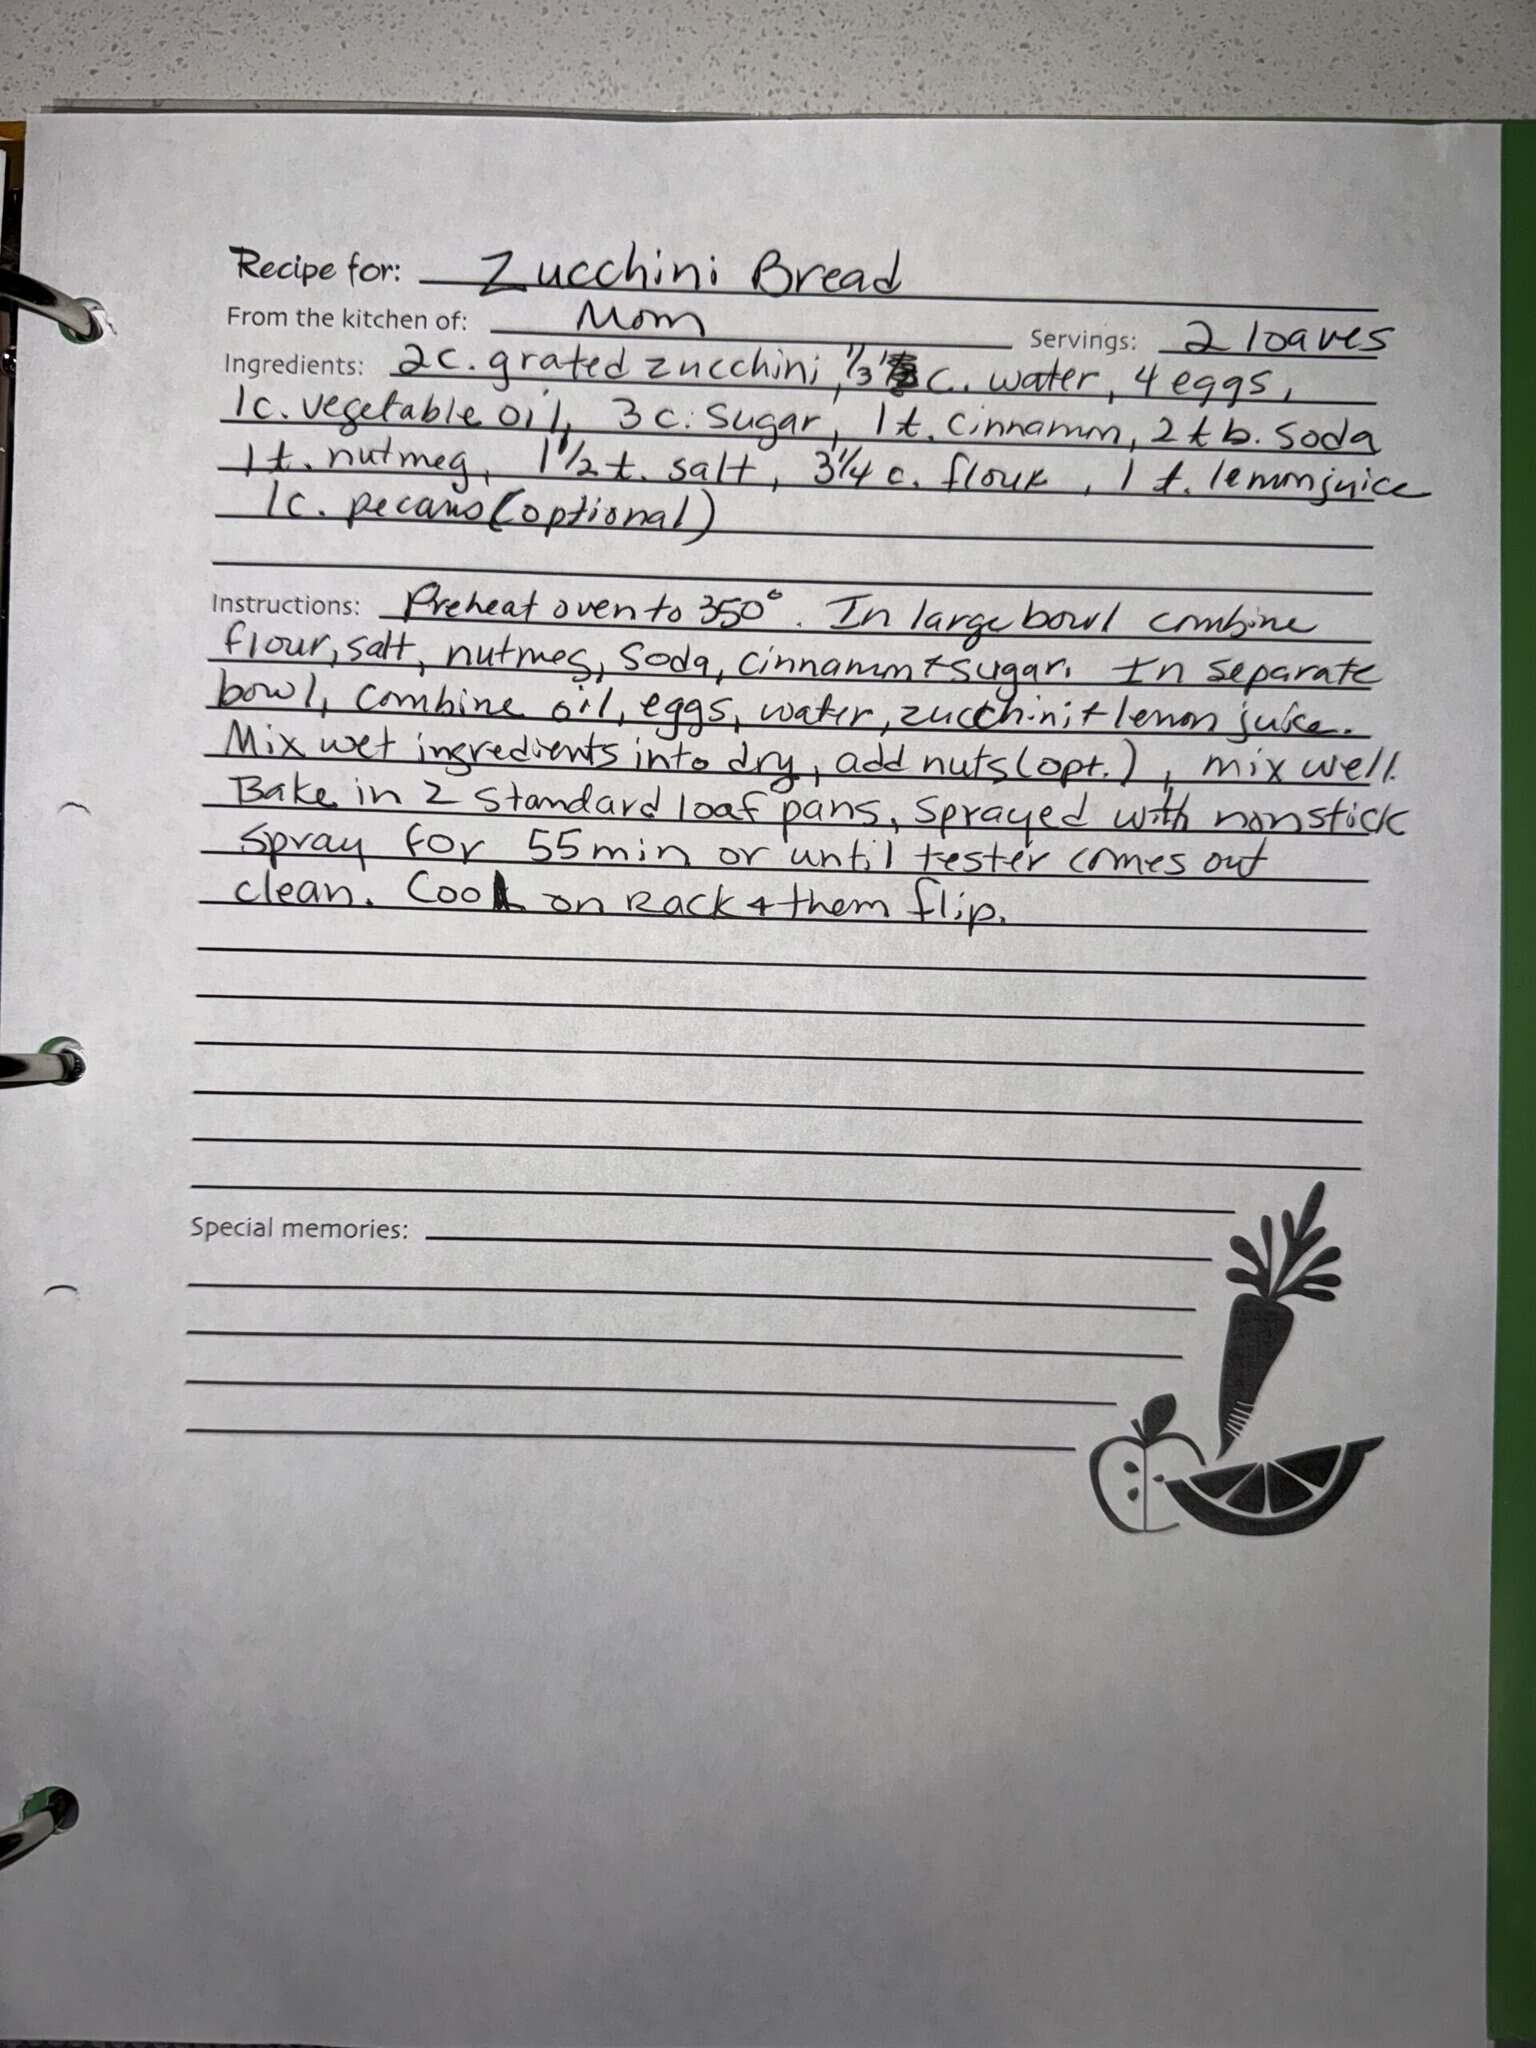 Recipe for: Zucchini Bread
From the kitchen of: Mom Servings: 2 loaves
Ingredients: 2c. grated zucchini, 1/3 c. water, 4 eggs,
1c. vegetable oil, 3 c. sugar, 1 t. cinnamon, 2 tb. soda
1 t. nutmeg, 1 1/2 t. salt, 3 1/4 c. flour, 1 t. lemon juice
1c. pecans (optional)
Instructions: Preheat oven to 350°. In large bowl combine
flour, salt, nutmeg, soda, cinnamon + sugar. In separate
bowl, combine oil, eggs, water, zucchini + lemon juice.
Mix wet ingredients into dry, add nuts (opt.), mix well.
Bake in 2 standard loaf pans, sprayed with nonstick
spray for 55 min or until tester comes out
clean. Cool on rack & them flip.
Special memories: